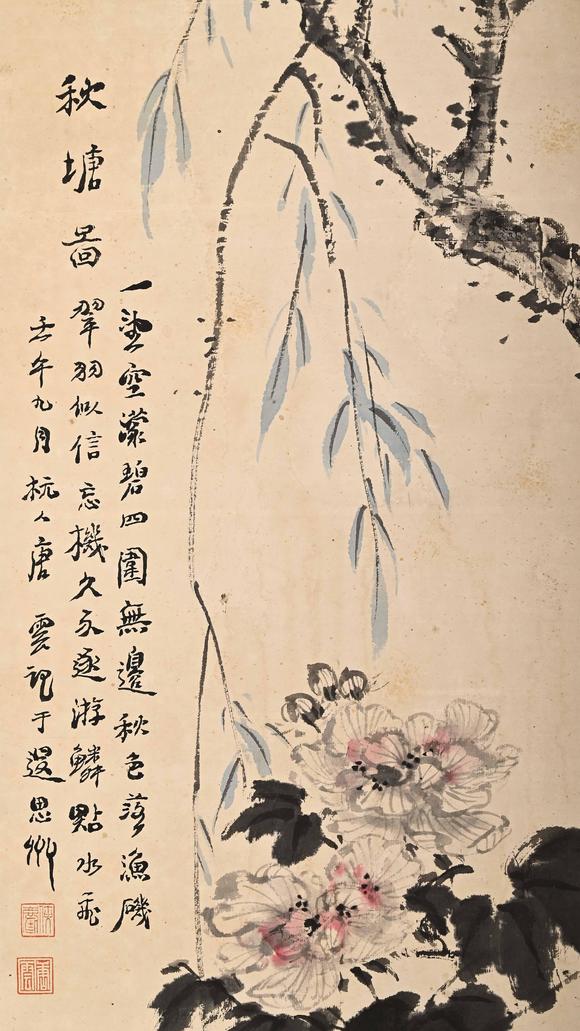 秋塘啚
一望空濛碧四圍無邊秋色落漁磯
翠羽似信忘機久亦逐游鱗點水飛
壬午九月杭人唐雲記于思
俠塵
唐雲